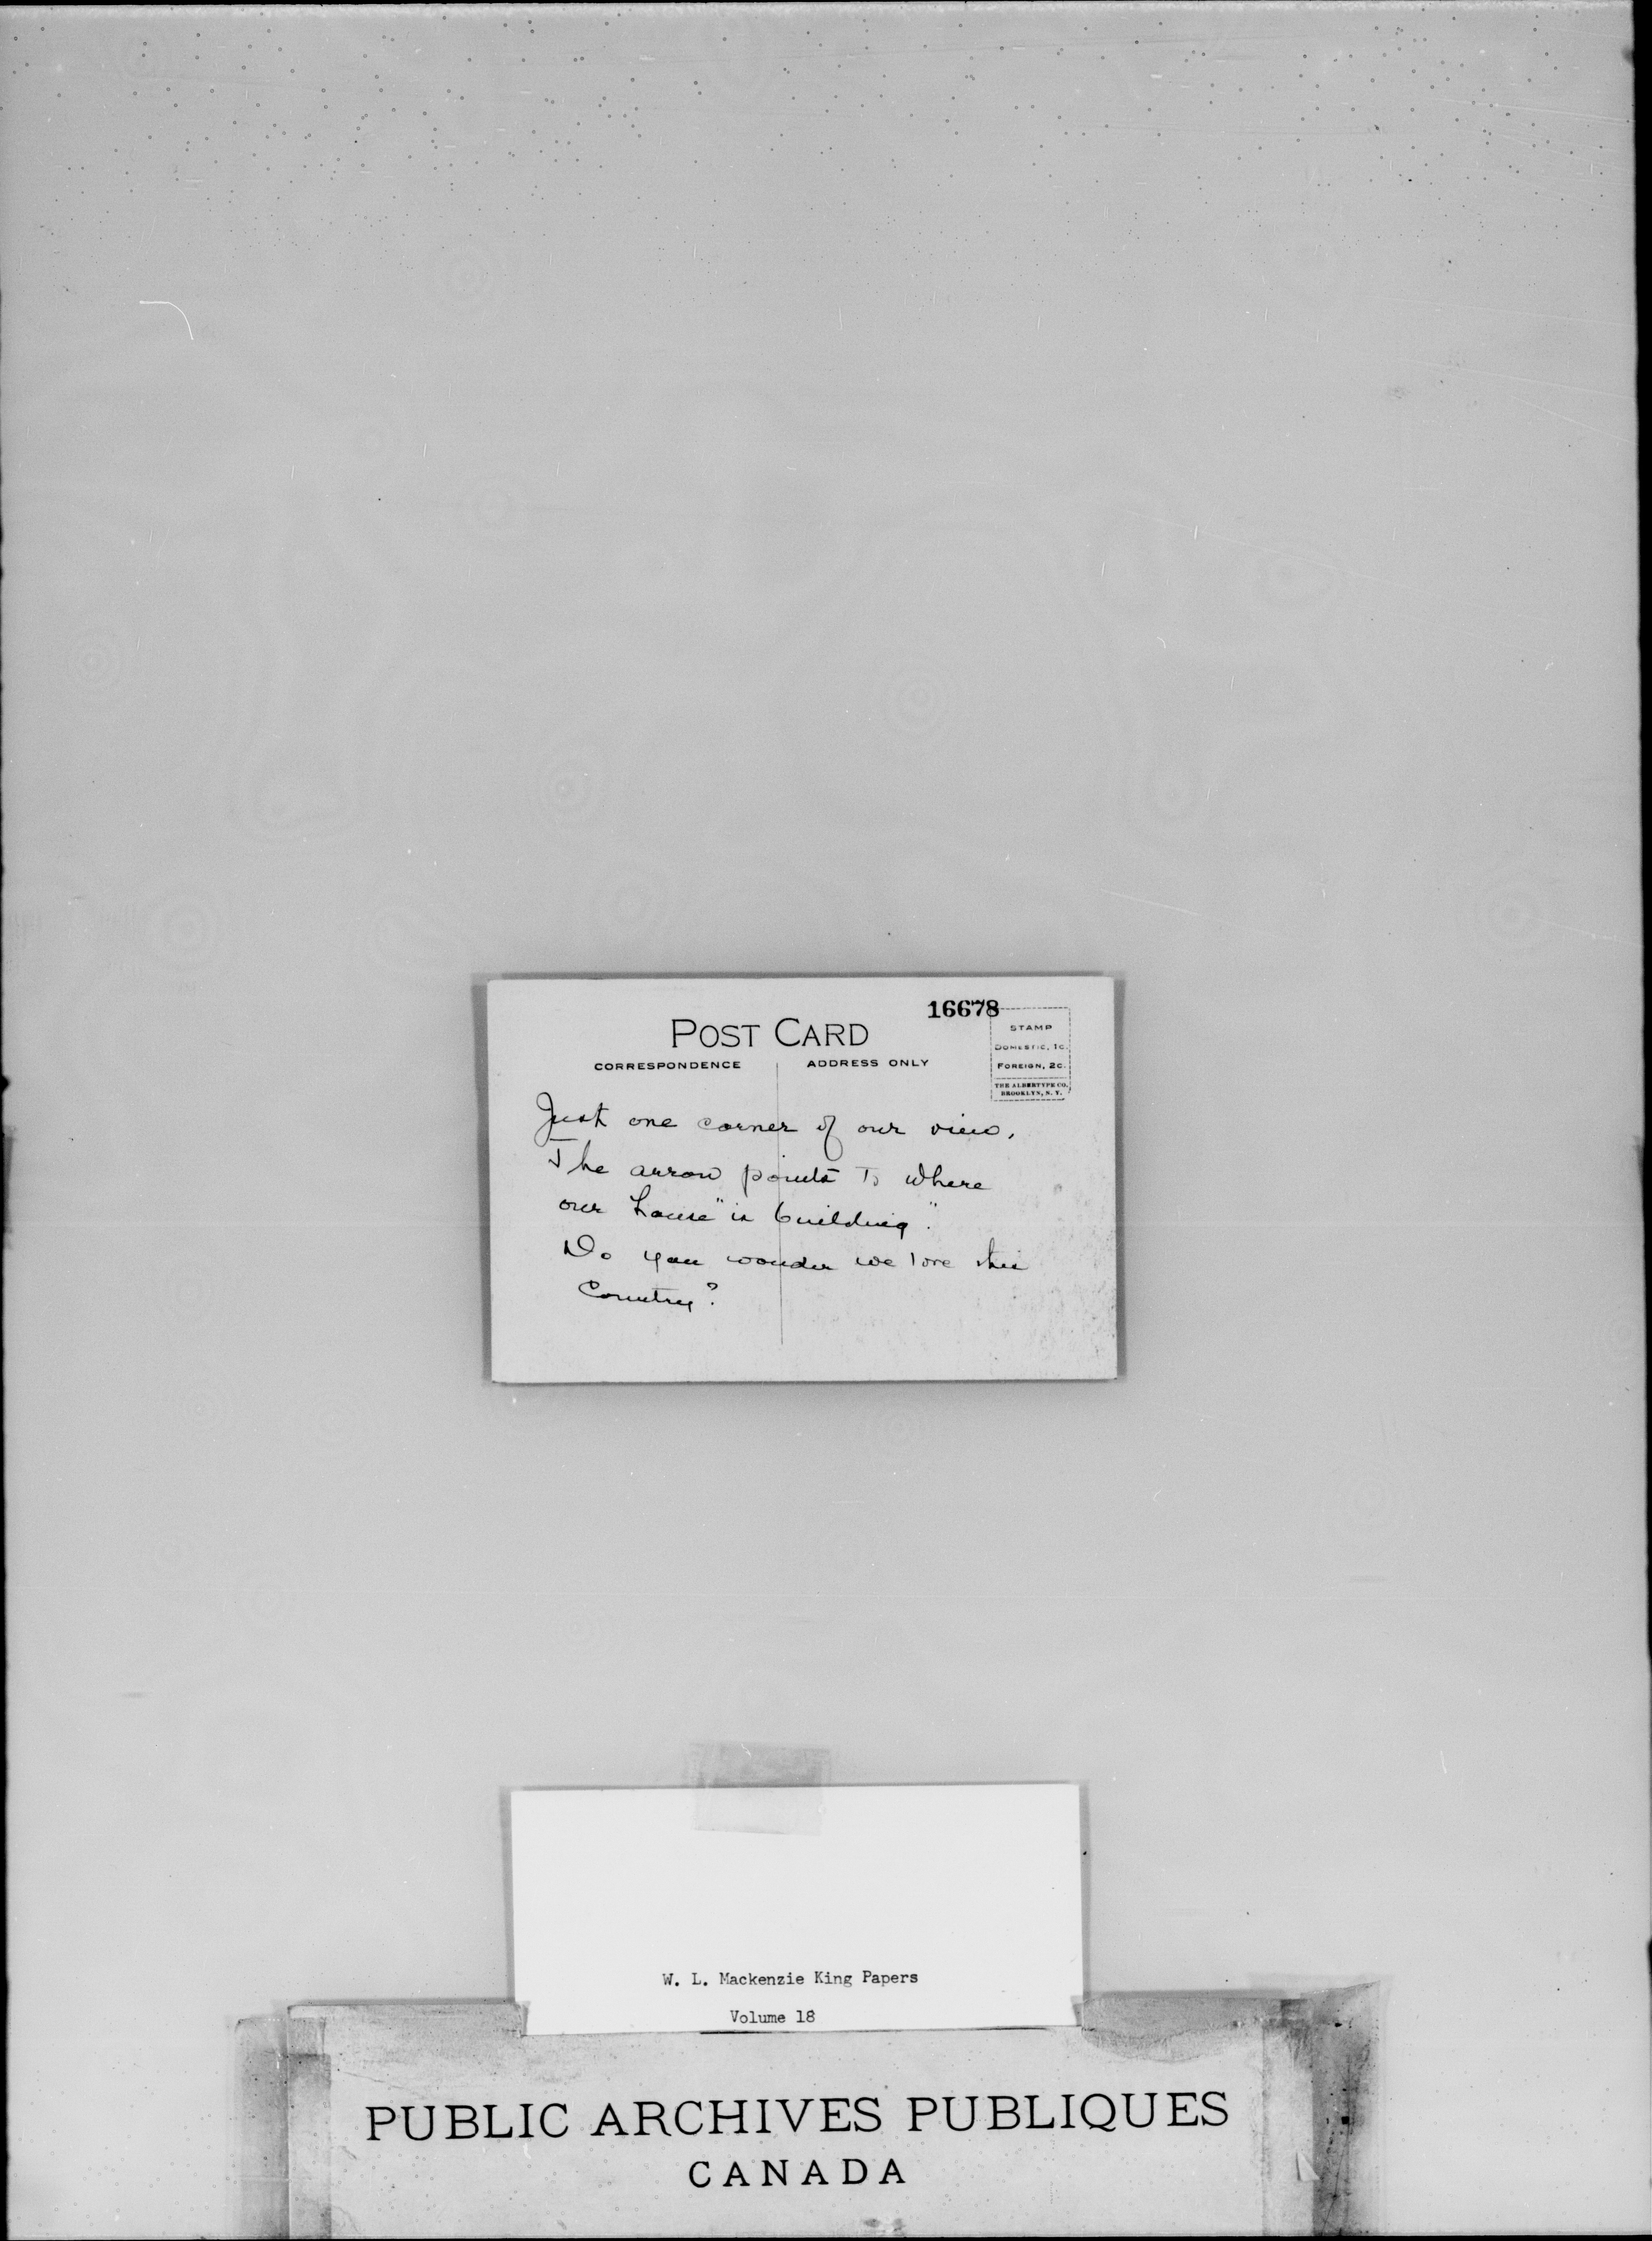 16678
POST CARD
CORRESPONDENCE
ADDRESS ONLY
STAMP
DOMESTIC, 1C.
FOREIGN, 2C.
THE ALBERTYPE CO.,
BROOKLYN, N. Y.
Just one corner of our view.
The arrow points to where
our house "is building".
Do you wonder we love this
Country?
W. L. Mackenzie King Papers
Volume 18
PUBLIC ARCHIVES PUBLIQUES
CANADA